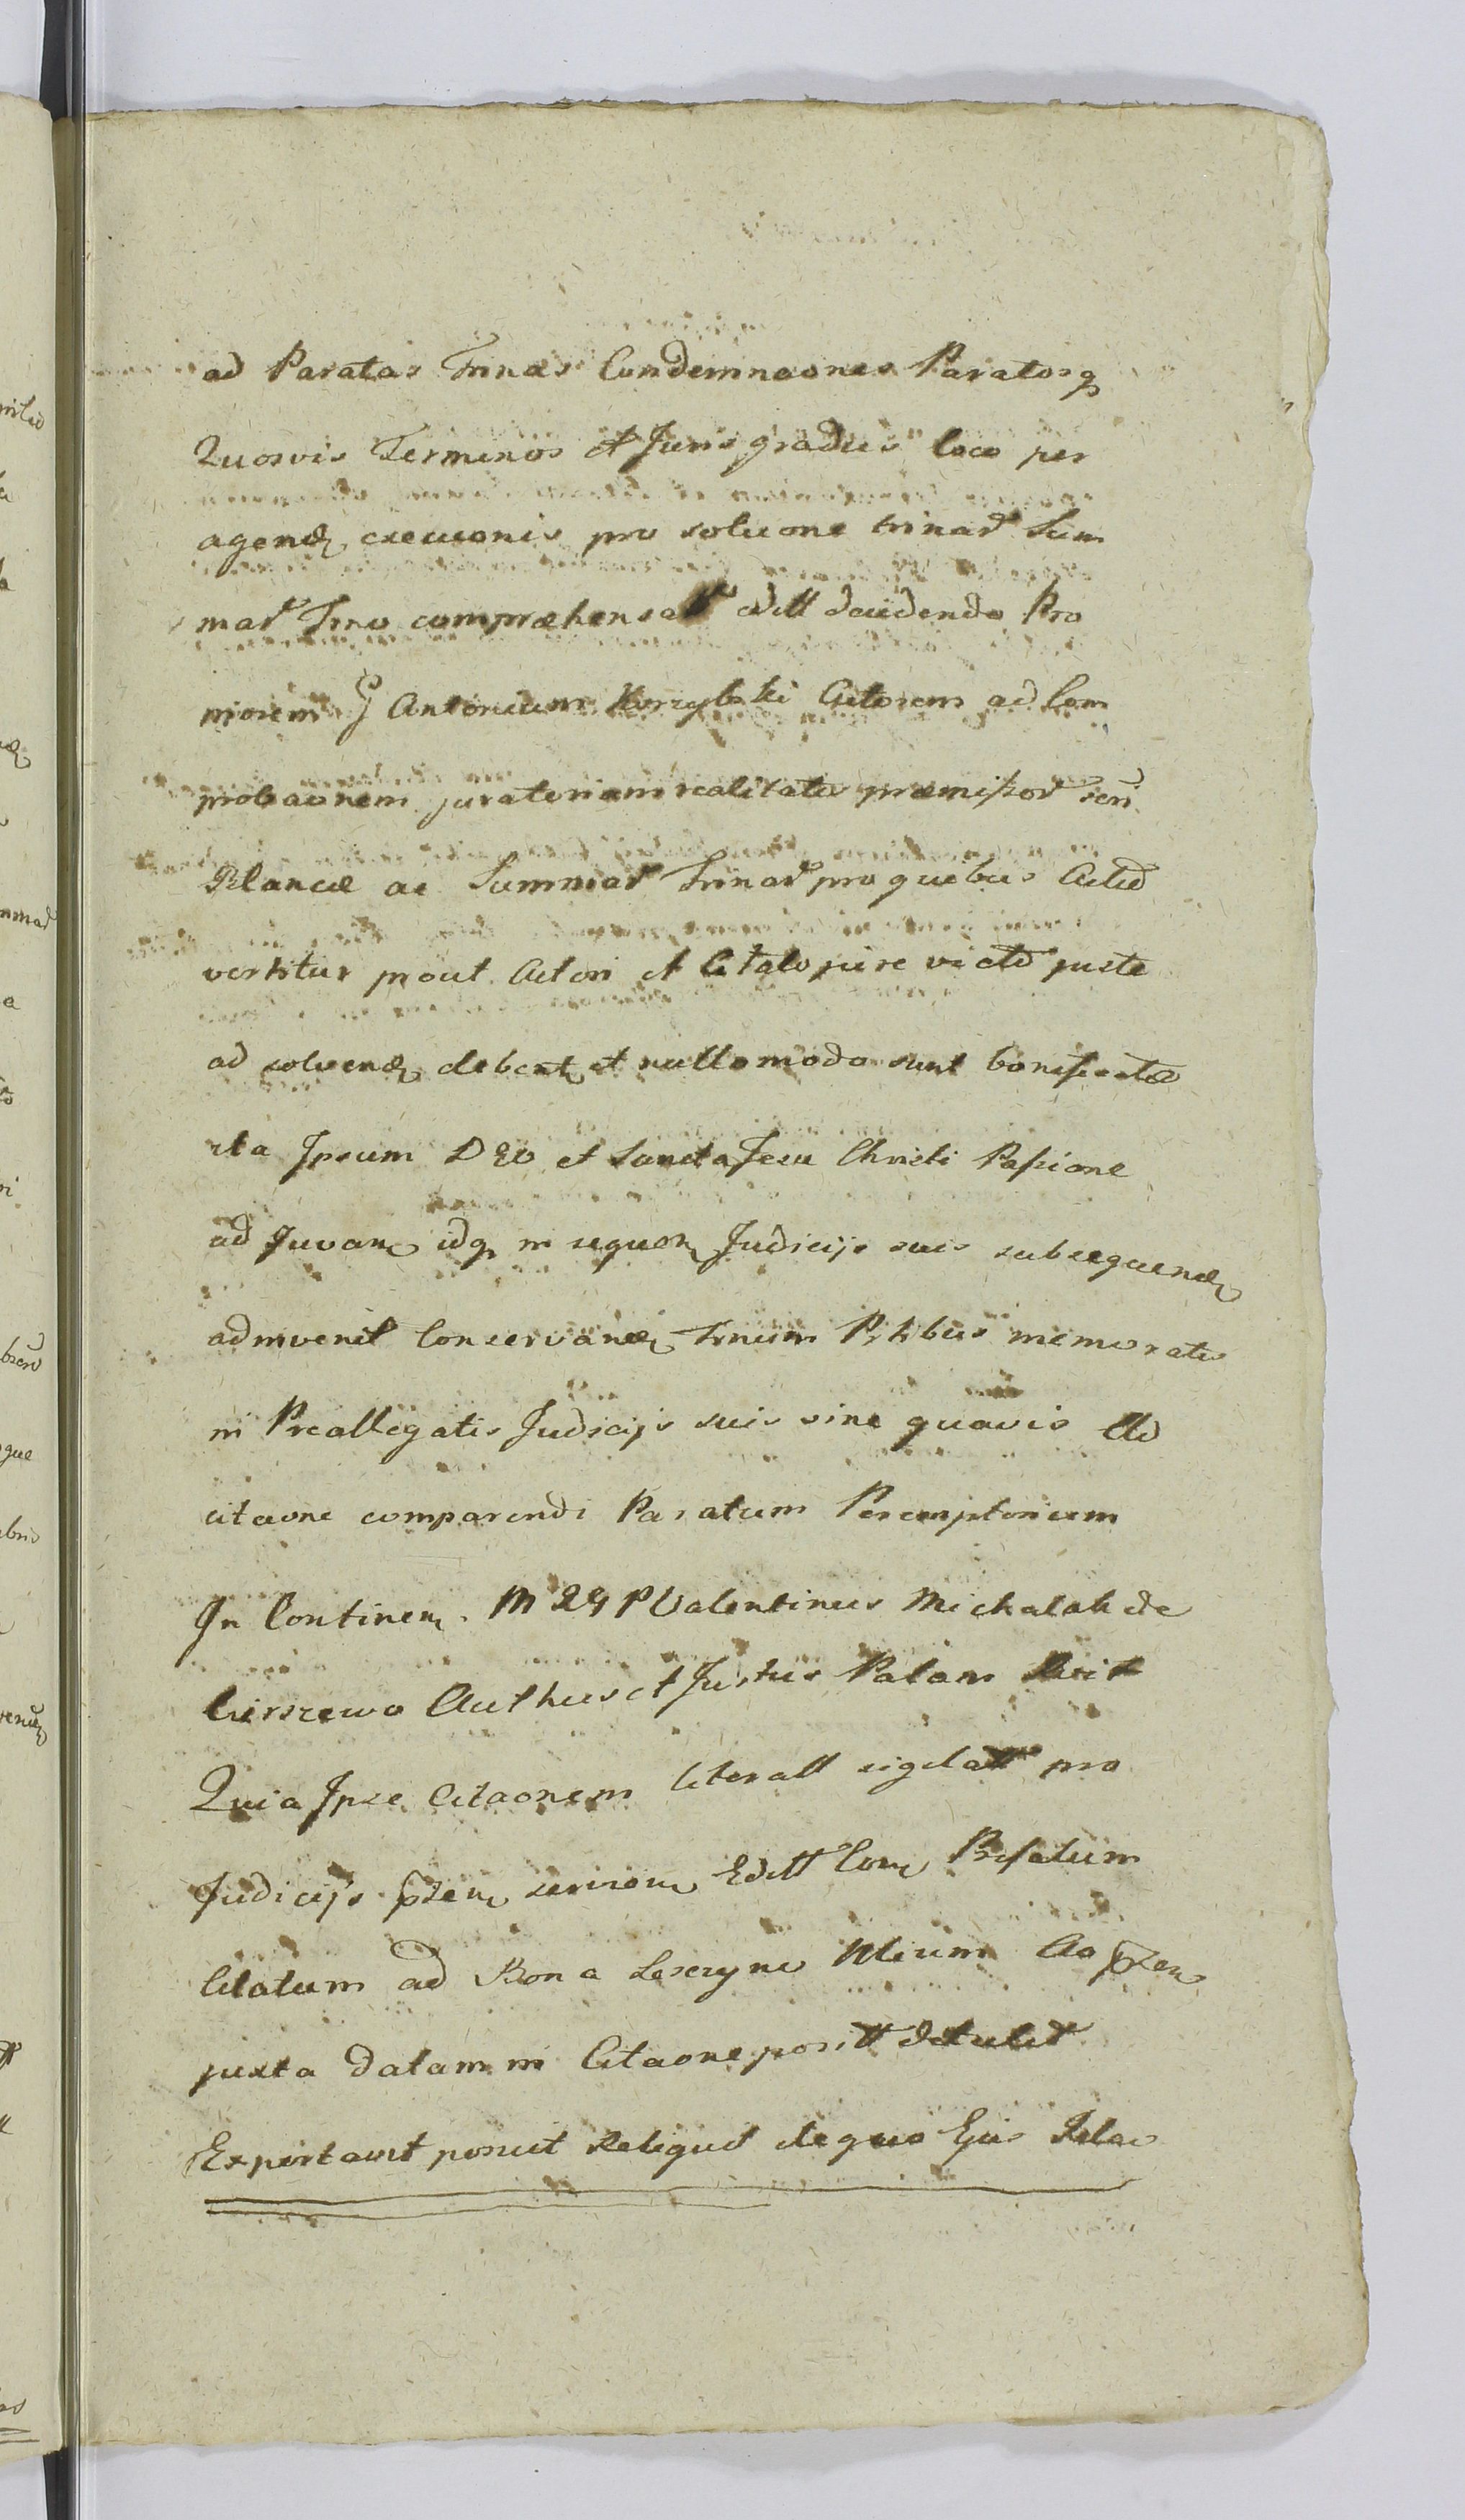 ad Paratas Trinas Condemnaones Paratosq
Quosvis Terminos et Juris gradus loco per
agend exeuonis pro soluone trinar Sum
mar Trno compræhensar edill decidendo Pro
niorem G Antonium Korzybski Actorem ad Com
probaonem juratoriam realitatis præmissor seri
Blancæ ac Summar Trinar pro quibus Actio
vertitur prout Actori et Citato jure victo juste
ad solvend debent et nullo modo sunt bonificatæ
ita Ipsum DEO et Sancta Jesu Christi Passione
ad Juvan idq in sequen Judicijs suis subsequend
adinvenit Conservand Trnum Ptibus memoratis
in Preallegatis Judicijs suis sine quavis Ad
citaone comparendi Paratum Peremptorium
In Continen. M 24 P Valentinus Michalak de
Cirszewo Authus et Juratus Palam
Quia Ipse Citaonem literall sigilatt pro
Judicijs pzen serviom Editt Con Prefatum
Citatum ad Bona Leszcyno Mium Ao pzen
juxta datam in Citaone positt detulit
Exportavit posuit Reliquit de quo Ejus Relao